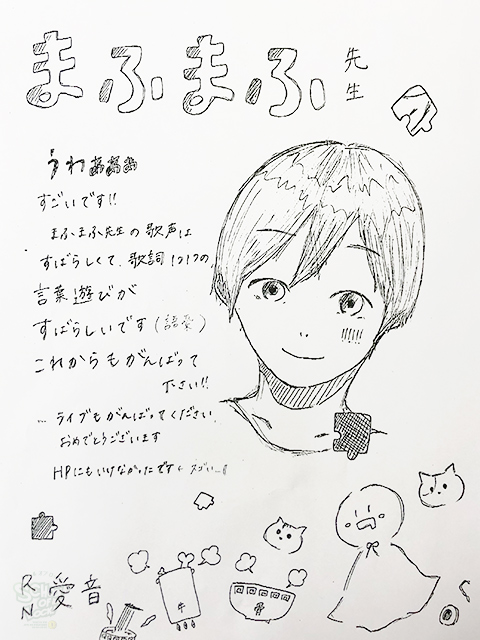 まふまふ先生
うわぁぁぁ
すごいです!!
まふまふ先生の歌声は
すばらしくて、歌詞1つ1つの
言葉遊びが
すばらしいです(語彙)
これからもがんばって
下さい!!
…ライブもがんばってください、
おめでとうございます
HPにもいけなかったです
RN 愛音
牛
骨